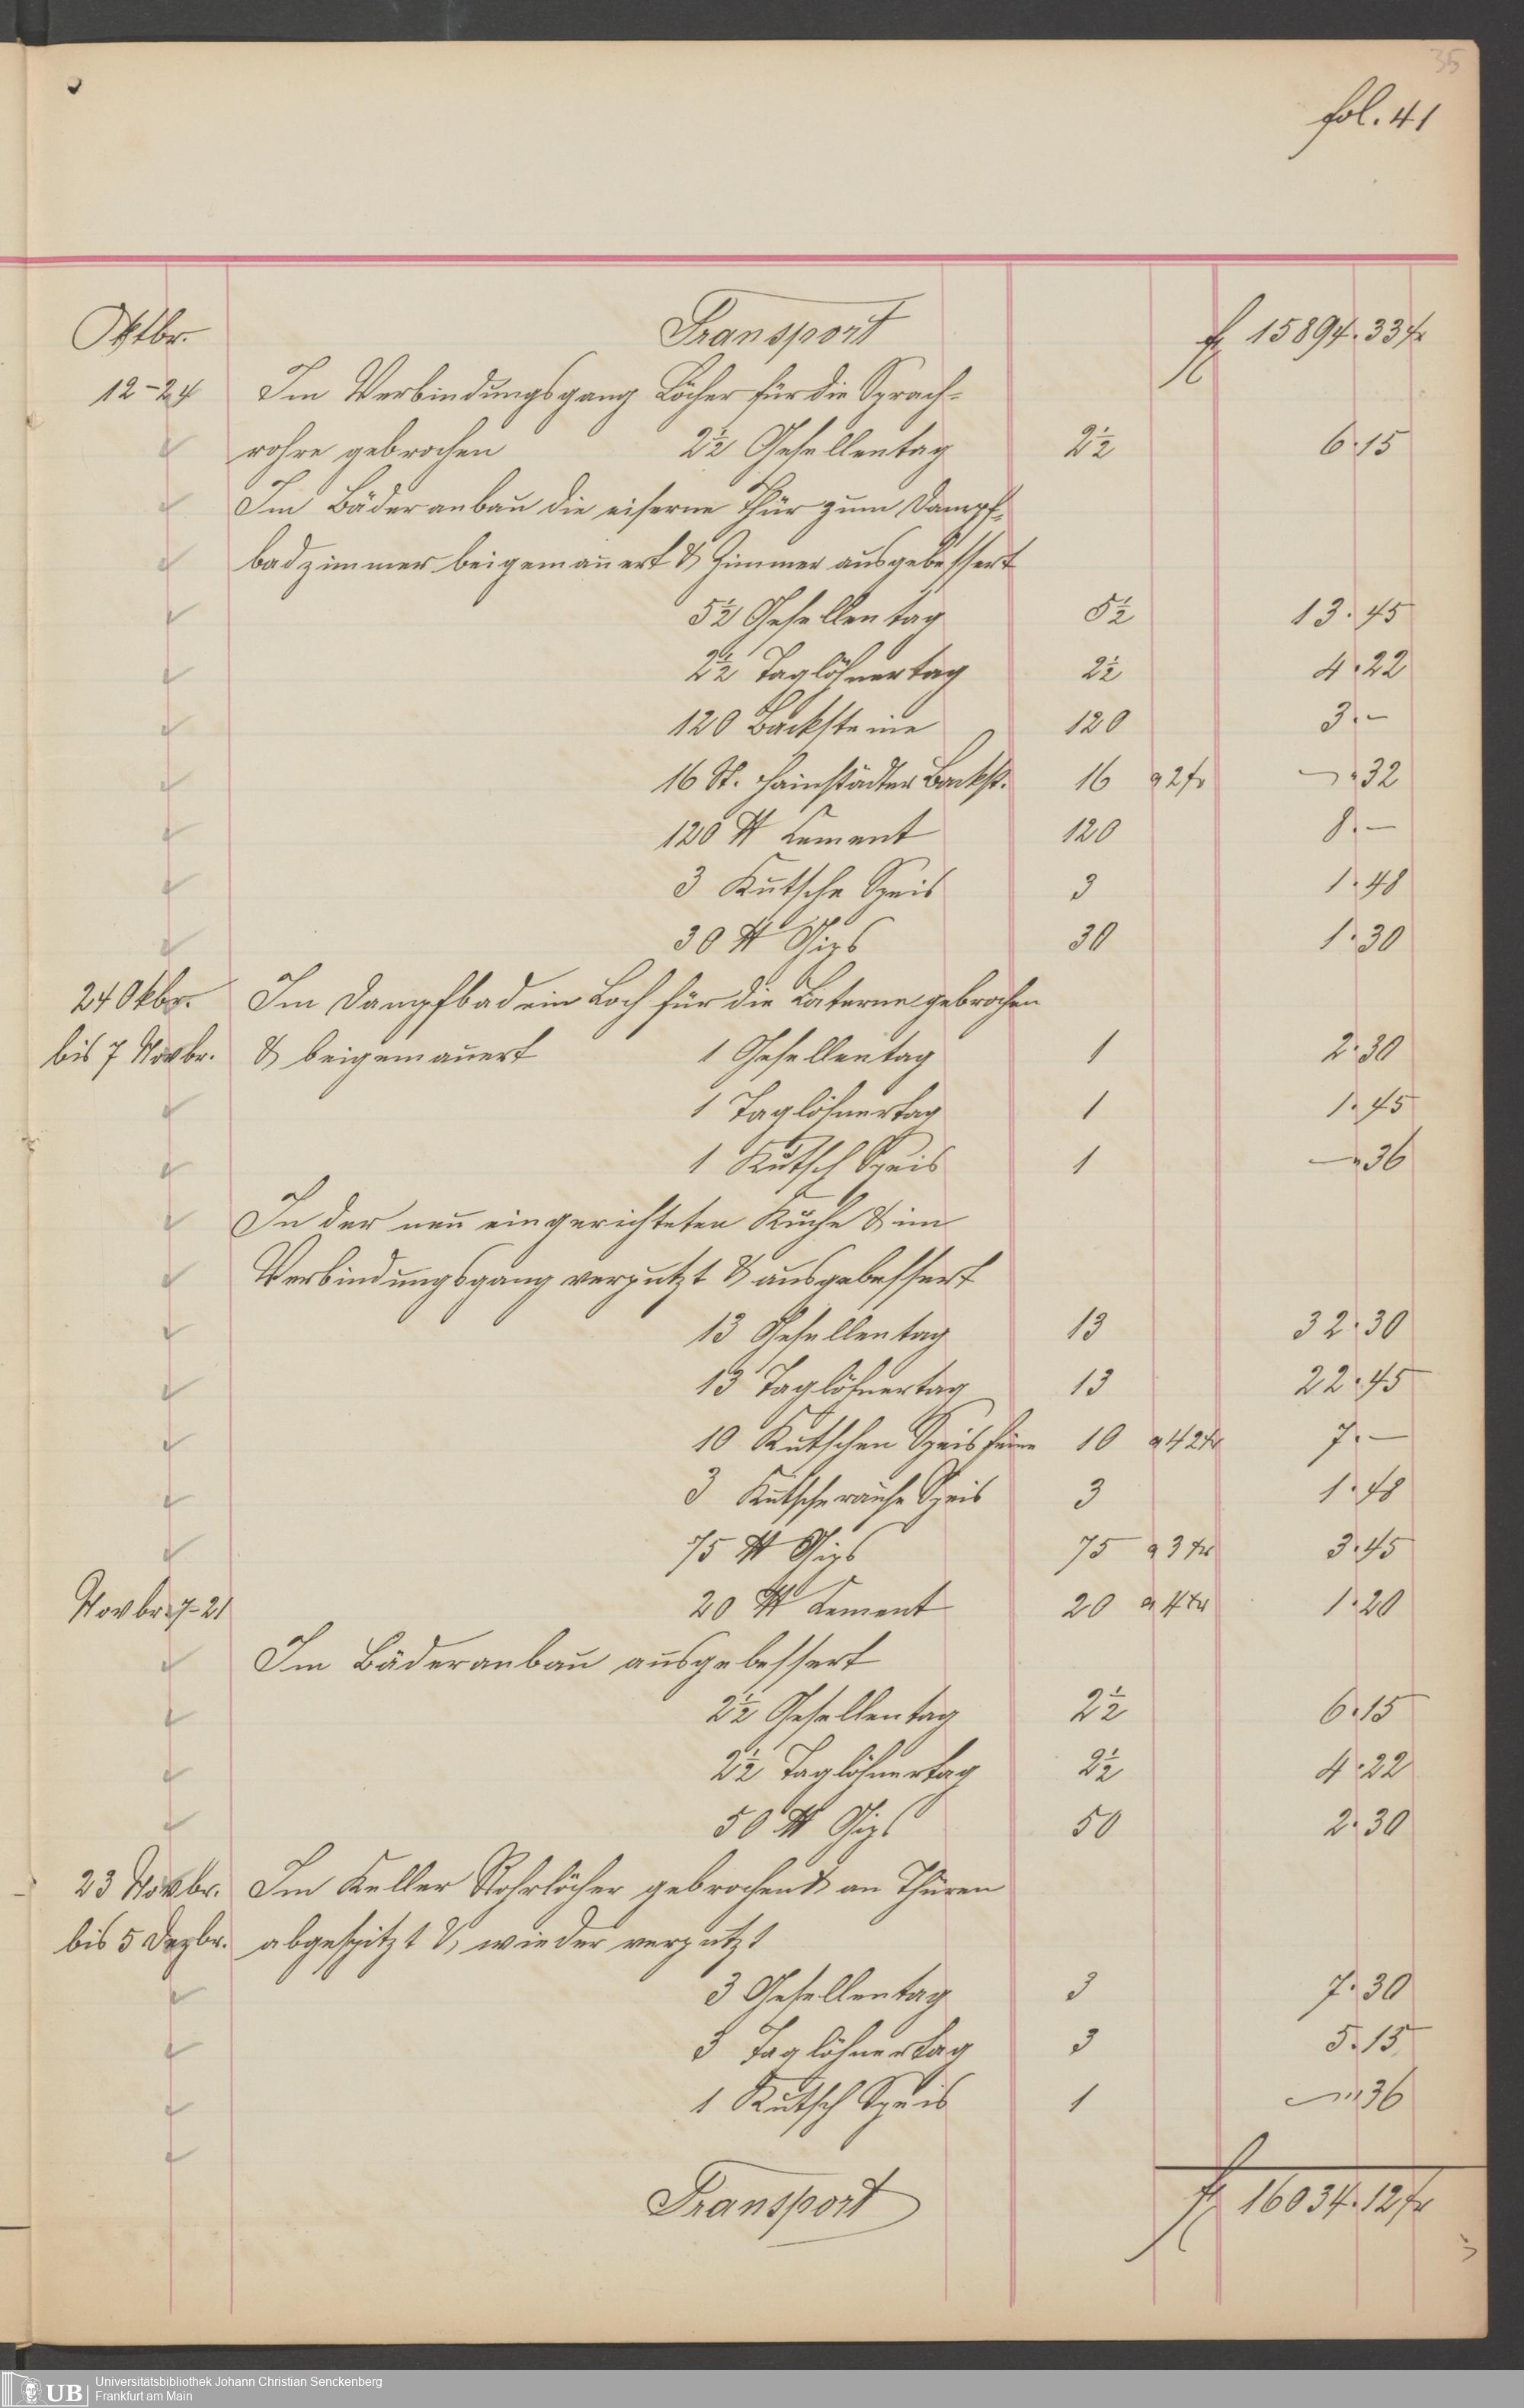 35
fol. 41
Oktbr. Transport fl 15894. 33 kr
12-24 Im Verbindungsgang Löcher für die Sprach-
rohre gebrochen 2½ Gesellentag 2½ 6. 15
Im Bäderanbau die eiserne Thür zum Dampf-
badzimmer beigemauert & Zimmer ausgebessert
5½ Gesellentag 5½ 13. 45
2½ Taglöhnertag 2½ 4. 22
120 Backsteine 120 3. –
16 St. Hainstädter Backst. 16 a 2 kr – 32
120 ℔ Cement 120 8. –
3 Kutsche Speis 3 1. 48
30 ℔ Gips 30 1. 30
24 Okbr. Im Dampfbad ein Loch für die Laterne gebrochen
bis 7 Novbr. & beigemauert 1 Gesellentag 1 2. 30
1 Taglöhnertag 1 1. 45
1 Kutsch Speis 1 – 36
In der neu eingerichteten Küche & im
Verbindungsgang verputzt & ausgebessert
13 Gesellentag 13 32. 30
13 Taglöhnertag 13 22. 45
10 Kutschen Speis feine 10 a 42 kr 7. –
3 Kutsche rauhe Speis 3 1. 48
75 ℔ Gips 75 a 3 kr 3. 45
Novbr. 7-21 20 ℔ Cement 20 a 4 kr 1. 20
Im Bäderanbau ausgebessert
2½ Gesellentag 2½ 6. 15
2½ Taglöhnertag 2½ 4. 22
50 ℔ Gips 50 2. 30
23 Novbr. Im Keller Rohrlöcher gebrochen & an Thüren
bis 5 Dezbr. abgespitzt & wieder verputzt
3 Gesellentag 3 7. 30
3 Taglöhnertag 3 5. 15
1 Kutsch Speis 1 – 36
Transport fl 16034. 12 kr
UB Universitätsbibliothek Johann Christian Senckenberg
Frankfurt am Main